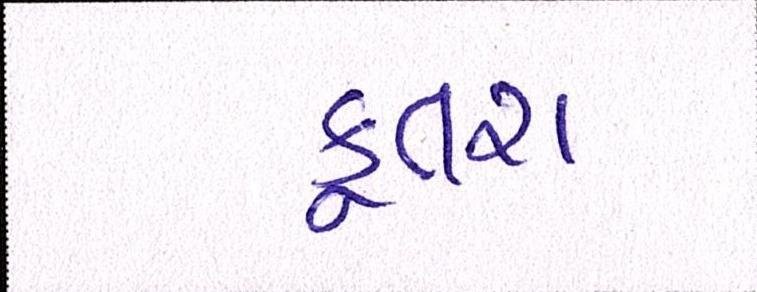 કૂતરા